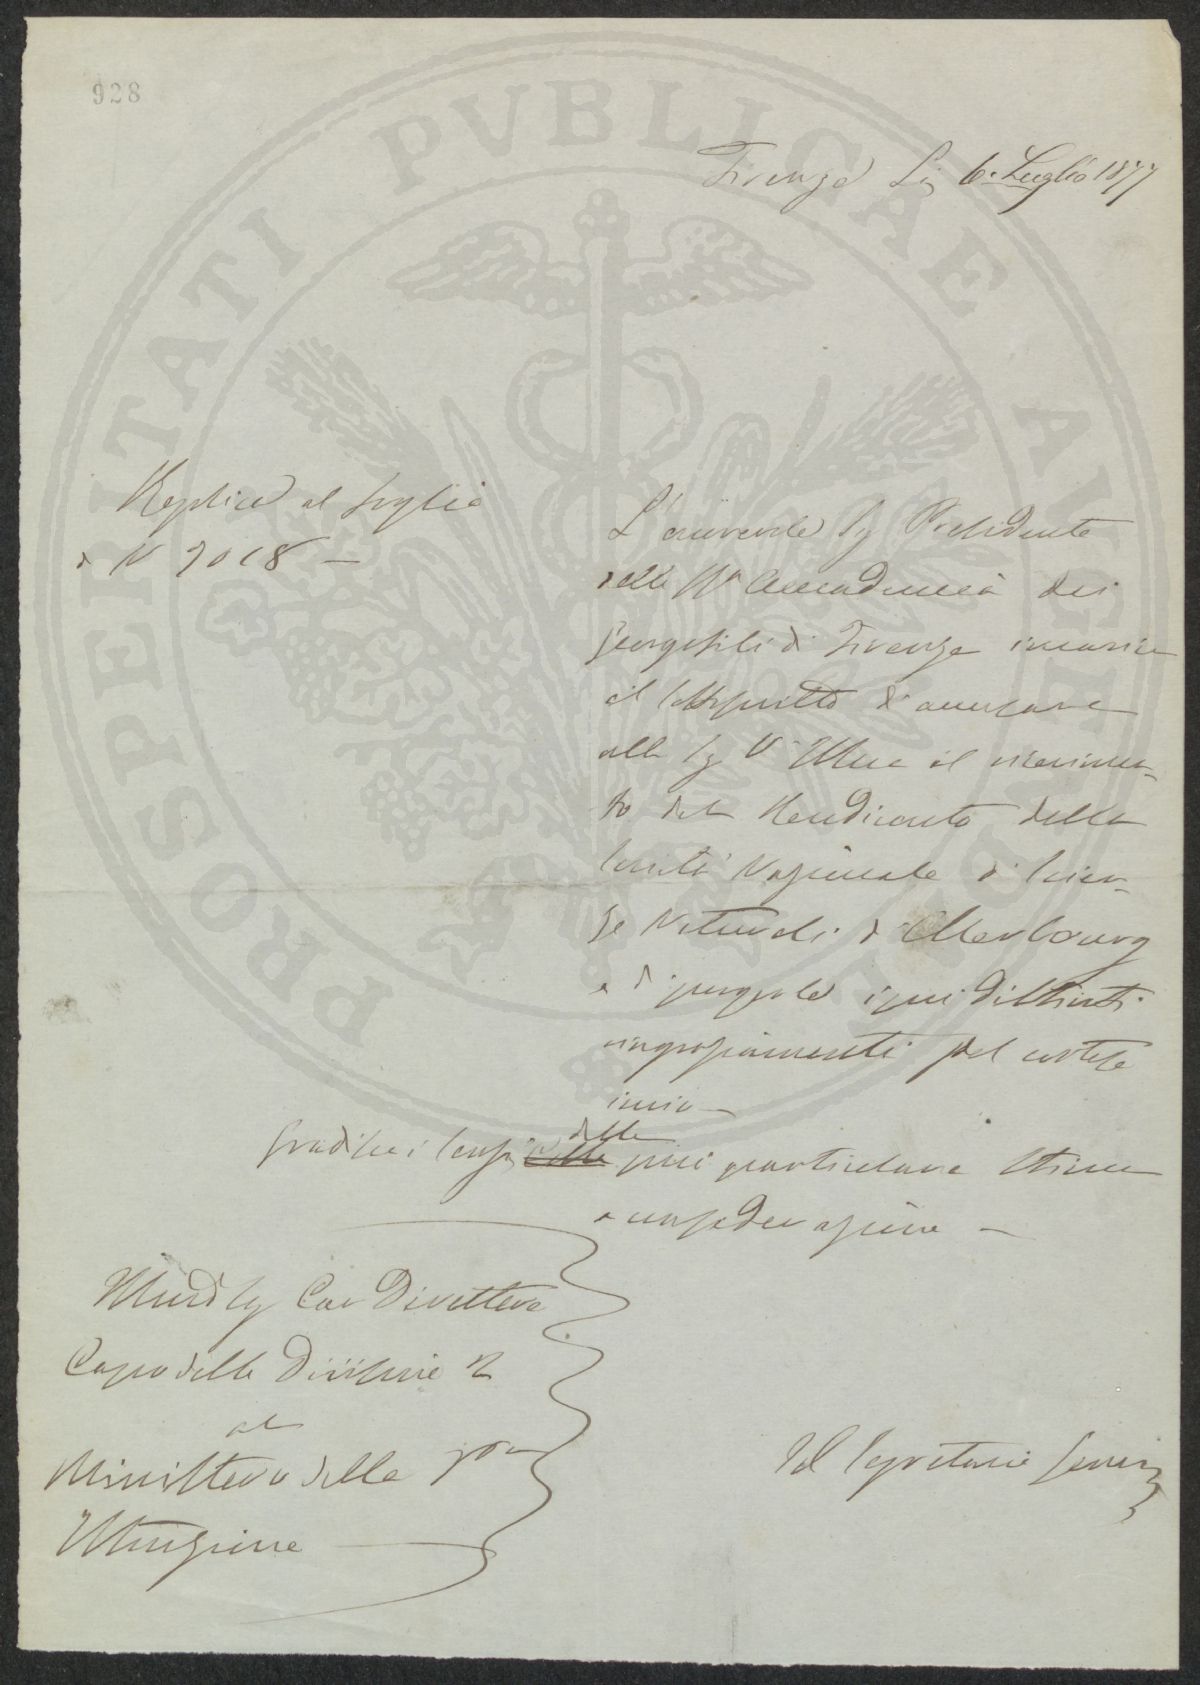 928
PROSPERITATI PVBLICAE AVGENDAE
Firenze Li 6. Luglio 1877
Replica al foglio
di N 7018 —
L'onorevole Sig Presidente
della Rª Accademia dei
Georgofili di Firenze incarica
il sottoscritto d'accusare
alla Sig Vª Illma il ricevimen-
to del Rendiconto della
Società Nazionale di Scien-
ze Naturali di Cherbourg
e di porgerle i più distinti
ringraziamenti pel cortese
invio —
Gradisca i sensi della più particolare stima
e considerazione —
Illmo Sig Cav Direttore
Capo della Divisione 2
al
Ministero della
Istruzione
Il Segretario